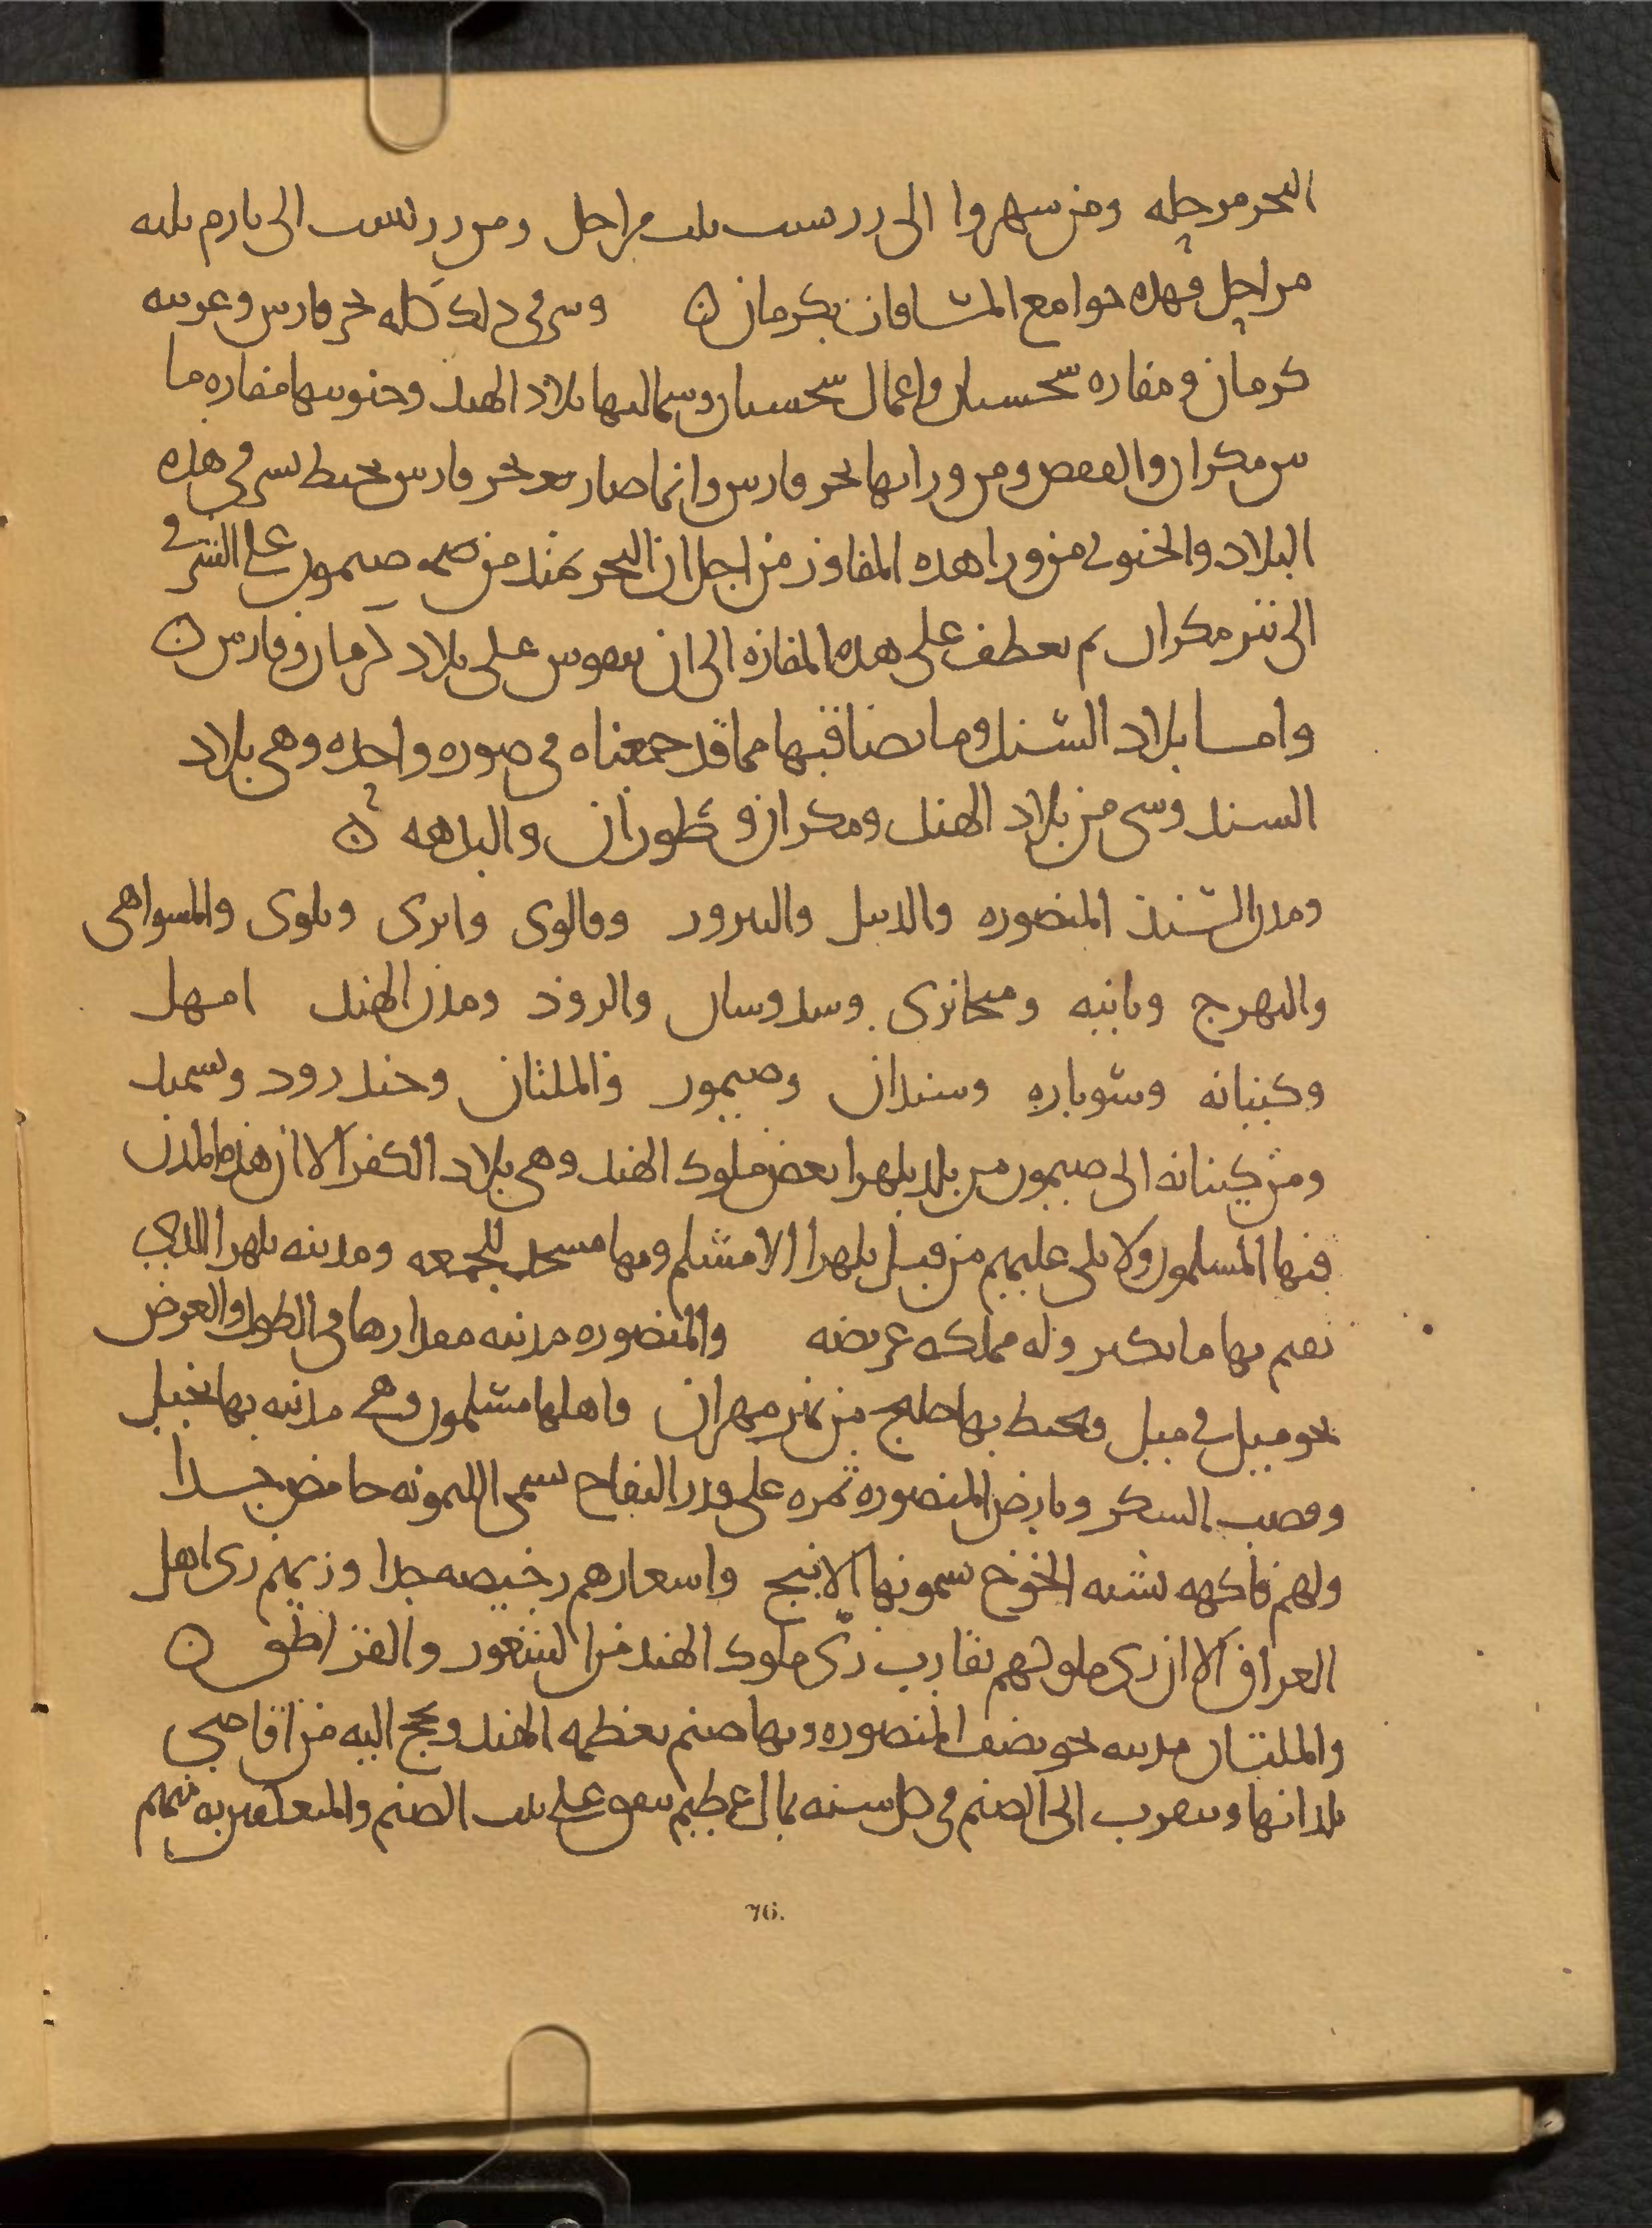 البحر مرحله ومن سهروا الى رردست ىلىه مراحل ومن رردست الى بارم ىلىه
مراحل فهذه جوامع المسافات بكرمان ن وشرقى ذلك كله بحر فارس وغربيه
كرمان ومفازه سجستان واعمال سجستان وشماليها بلاد الهند وجنوبيها مفازه ما
بين مكران والقفص ومن ورائها بحر فارس وانما صار بحر فارس يحيط بشرقى هذه
البلاد والجنوبى من ورا هذه المفاوز من اجل ان البحر يمتد من صيمور على الشرقى
الى تيز مكران ثم يعطف على هذه المفازه الى ان يتقوس على بلاد كرمان وفارس ن
واما بلاد السند وما يصاقبها مما قد جمعناه فى صوره واحده وهى بلاد
السند وشى من بلاد الهند ومكران وطوران والبدهه ن
ومدن السند المنصوره والديبل والبيرور وقالوى وانرى وبلوى والمسواهى
والبهرج وبانيه ومنحاترى وسدوسان والروذ ومدن الهند امهل
وكنبانه وسوباره وسندان وصيمور والملتان وجندرود وبسمد
ومن كنبانه الى صيمور من بلد بلهرا بعض ملوك الهند وهى بلاد الكفر الا ان هذه المدن
فيها المسلمون ولا يلى عليهم من قبل بلهرا الا مسلم وبها مسجد للجمعه ومدينه بلهرا الذى
يقيم بها مانكير وله مملكه عريضه والمنصوره مدينه مقدارها فى الطول والعرض
نحو ميل فى ميل ويحيط بها خليج من نهر مهران واهلها مسلمون وهى مدينه بها نخيل
وقصب السكر وبارض المنصوره ثمره على قدر التفاح تسمى الليمونه حامض جدا
ولهم فاكهه تشبه الخوخ يسمونها الانبج واسعارهم رخيصه جدا وزيهم زى اهل
العراق الا ان زى ملوكهم يقارب زى ملوك الهند من الشعور والقراطق ن
والملتان مدينه نحو نصف المنصوره وبها صنم يعظمه الهند ويحج اليه من اقاصى
بلدانها ويتقرب الى الصنم فى كل سنه بمال عظيم ينفق على بيت الصنم والمعتكفين به منهم
76.